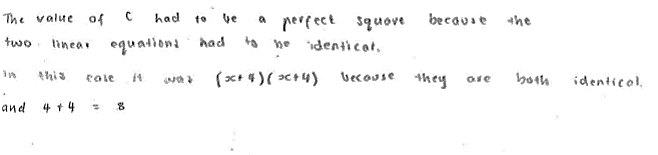 The value of C had to be a perfect square because the
two linear equations had to be identical.
in this case it was (x+4)(x+4) because they are both identical.
and 4 + 4 = 8